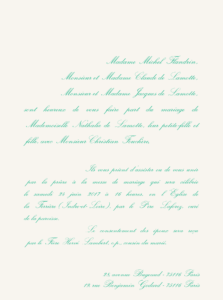 Madame Michel Flandrin,
Monsieur et Madame Claude de Lamotte,
Monsieur et Madame Jacques de Lamotte,
sont heureux de vous faire part du mariage de
Mademoiselle Nathalie de Lamotte, leur petite-fille et
fille, avec Monsieur Christian
Ils vous prient d'assister ou de vous unir
par la prière à la messe de mariage qui sera célébrée
le samedi 24 juin à 16 heures, en l'Église de
la (Indre-et-Loire), par le Père
de la paroisse.
Le consentement des époux sera reçu
par le Père Henri
75016 Paris
18 rue Benjamin Godard - 75016 Paris